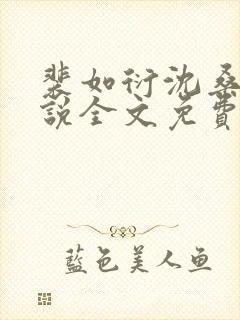 裴如衍沈桑
說全文免費
藍色美人鱼